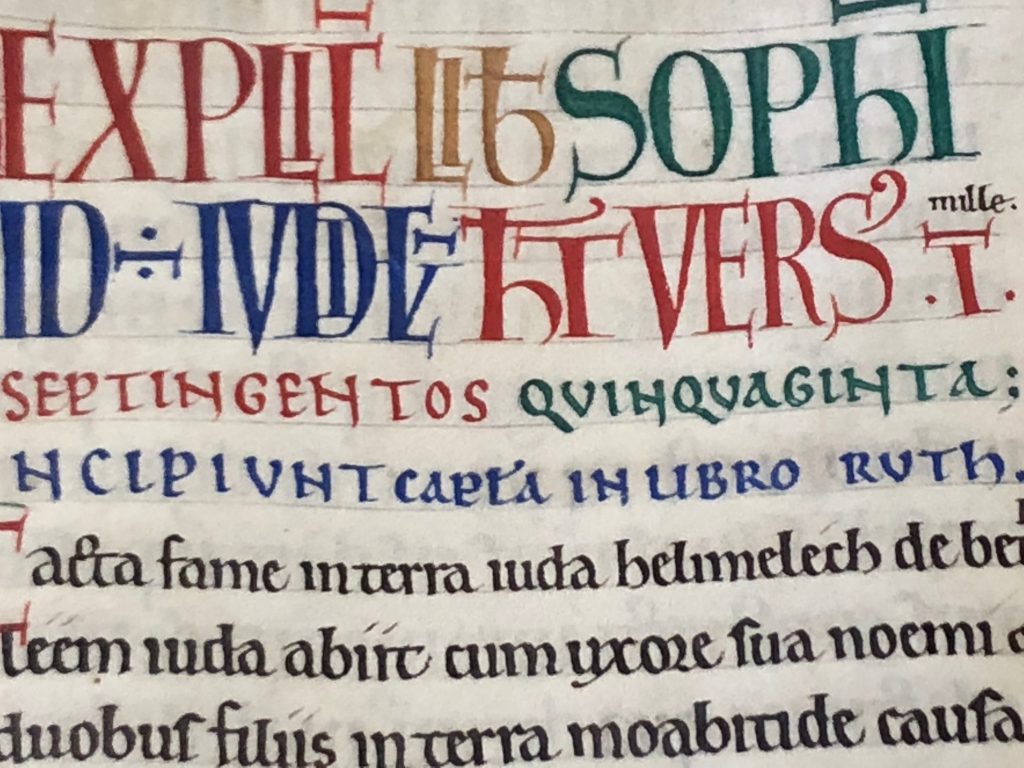 EXPLIT LIƀ SOPHI
ID ÷ IVDIDE H̅T VERS' mille. .I̅.
SEPTINGENTOS QVINQVAGINTA;
NCIPIVNT CAPĹA IN LIBRO RUTH.
acta fame in terra iuda helimelech de bet
leem iuda abiit cum uxore sua noemi
duobus filiis in terra moabitide causa